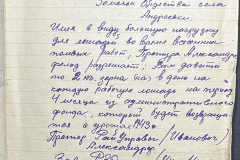 Общества села
Андреевки
Имея в виду большую нагрузку
для лошадей во время весенних
полевых работ, Претура Александр-
фельд разрешает Вам давать
по 2 кг. зерна (на) в день на
каждую рабочую лошадь на период
4 месяца из административного
фонда, который будет возвращен
с урожая 1943г.
Претор Рай Управы / Иванович
Александров